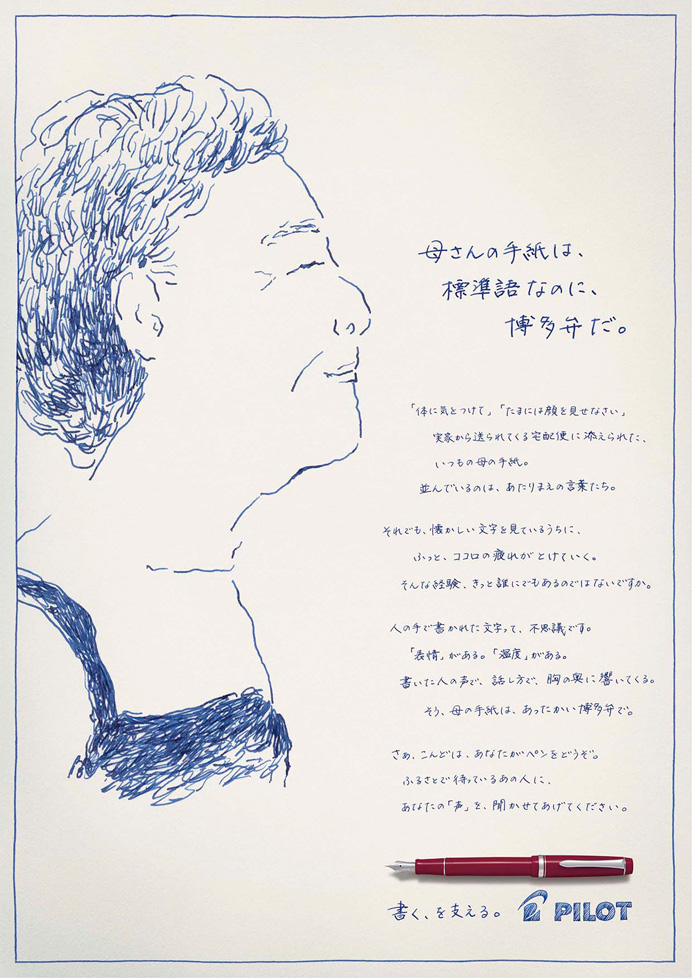 母さんの手紙は、
標準語なのに、
博多弁だ。
「体に気をつけて」「たまには顔を見せなさい」
実家から送られてくる宅配便に添えられた、
いつもの母の手紙。
並んでいるのは、あたりまえの言葉たち。
それでも、懐かしい文字を見ているうちに、
ふっと、ココロの疲れがとけていく。
そんな経験、きっと誰にでもあるのではないですか。
人の手で書かれた文字って、不思議です。
「表情」がある。「温度」がある。
書いた人の声で、話し方で、胸の奥に響いてくる。
そう、母の手紙は、あったかい博多弁で。
さぁ、こんどは、あなたがペンをどうぞ。
ふるさとで待っているあの人に、
あなたの「声」を、聞かせてあげてください。
書く、を支える。 PILOT